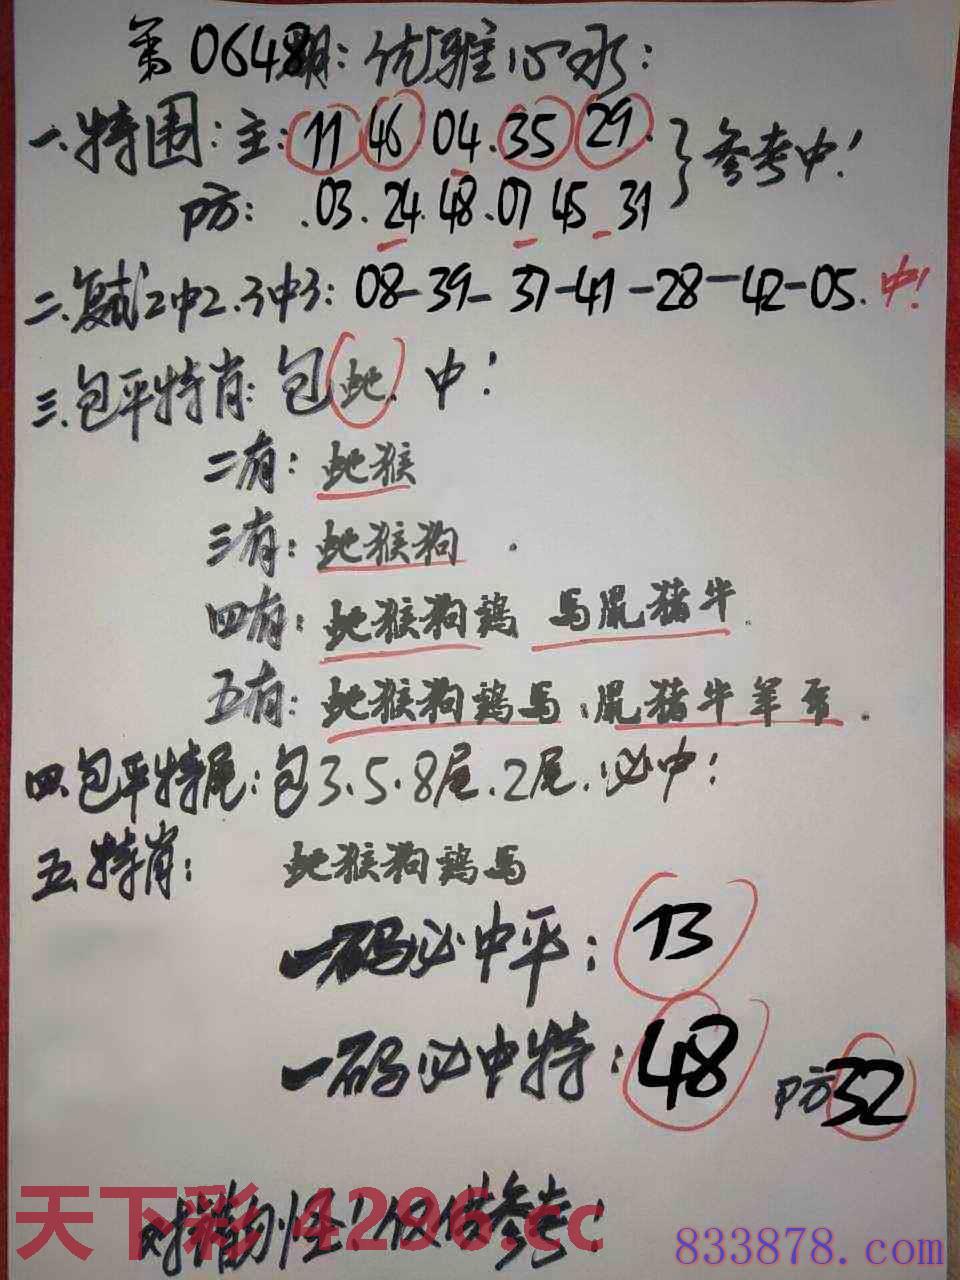 第0648期：优雅心水：
一.特围：主：11 46 04.35 29.
防：.03.24.48.07 45 31
}参考中！
二.复式2中2.3中3：08-39-37-41-28-42-05.中！
三.包平特肖：包蛇.中！
二有：蛇猴
三有：蛇猴狗.
四有：蛇猴狗鸡 马鼠猪牛.
五有：蛇猴狗鸡马.鼠猪牛羊.
四.包平特尾：包3.5.8尾.2尾.必中！
五.特肖：蛇猴狗鸡马
一码必中平：13
一码必中特：48 防32
对错勿怪！仅供参考！
天下彩 4296.cc
833878.com